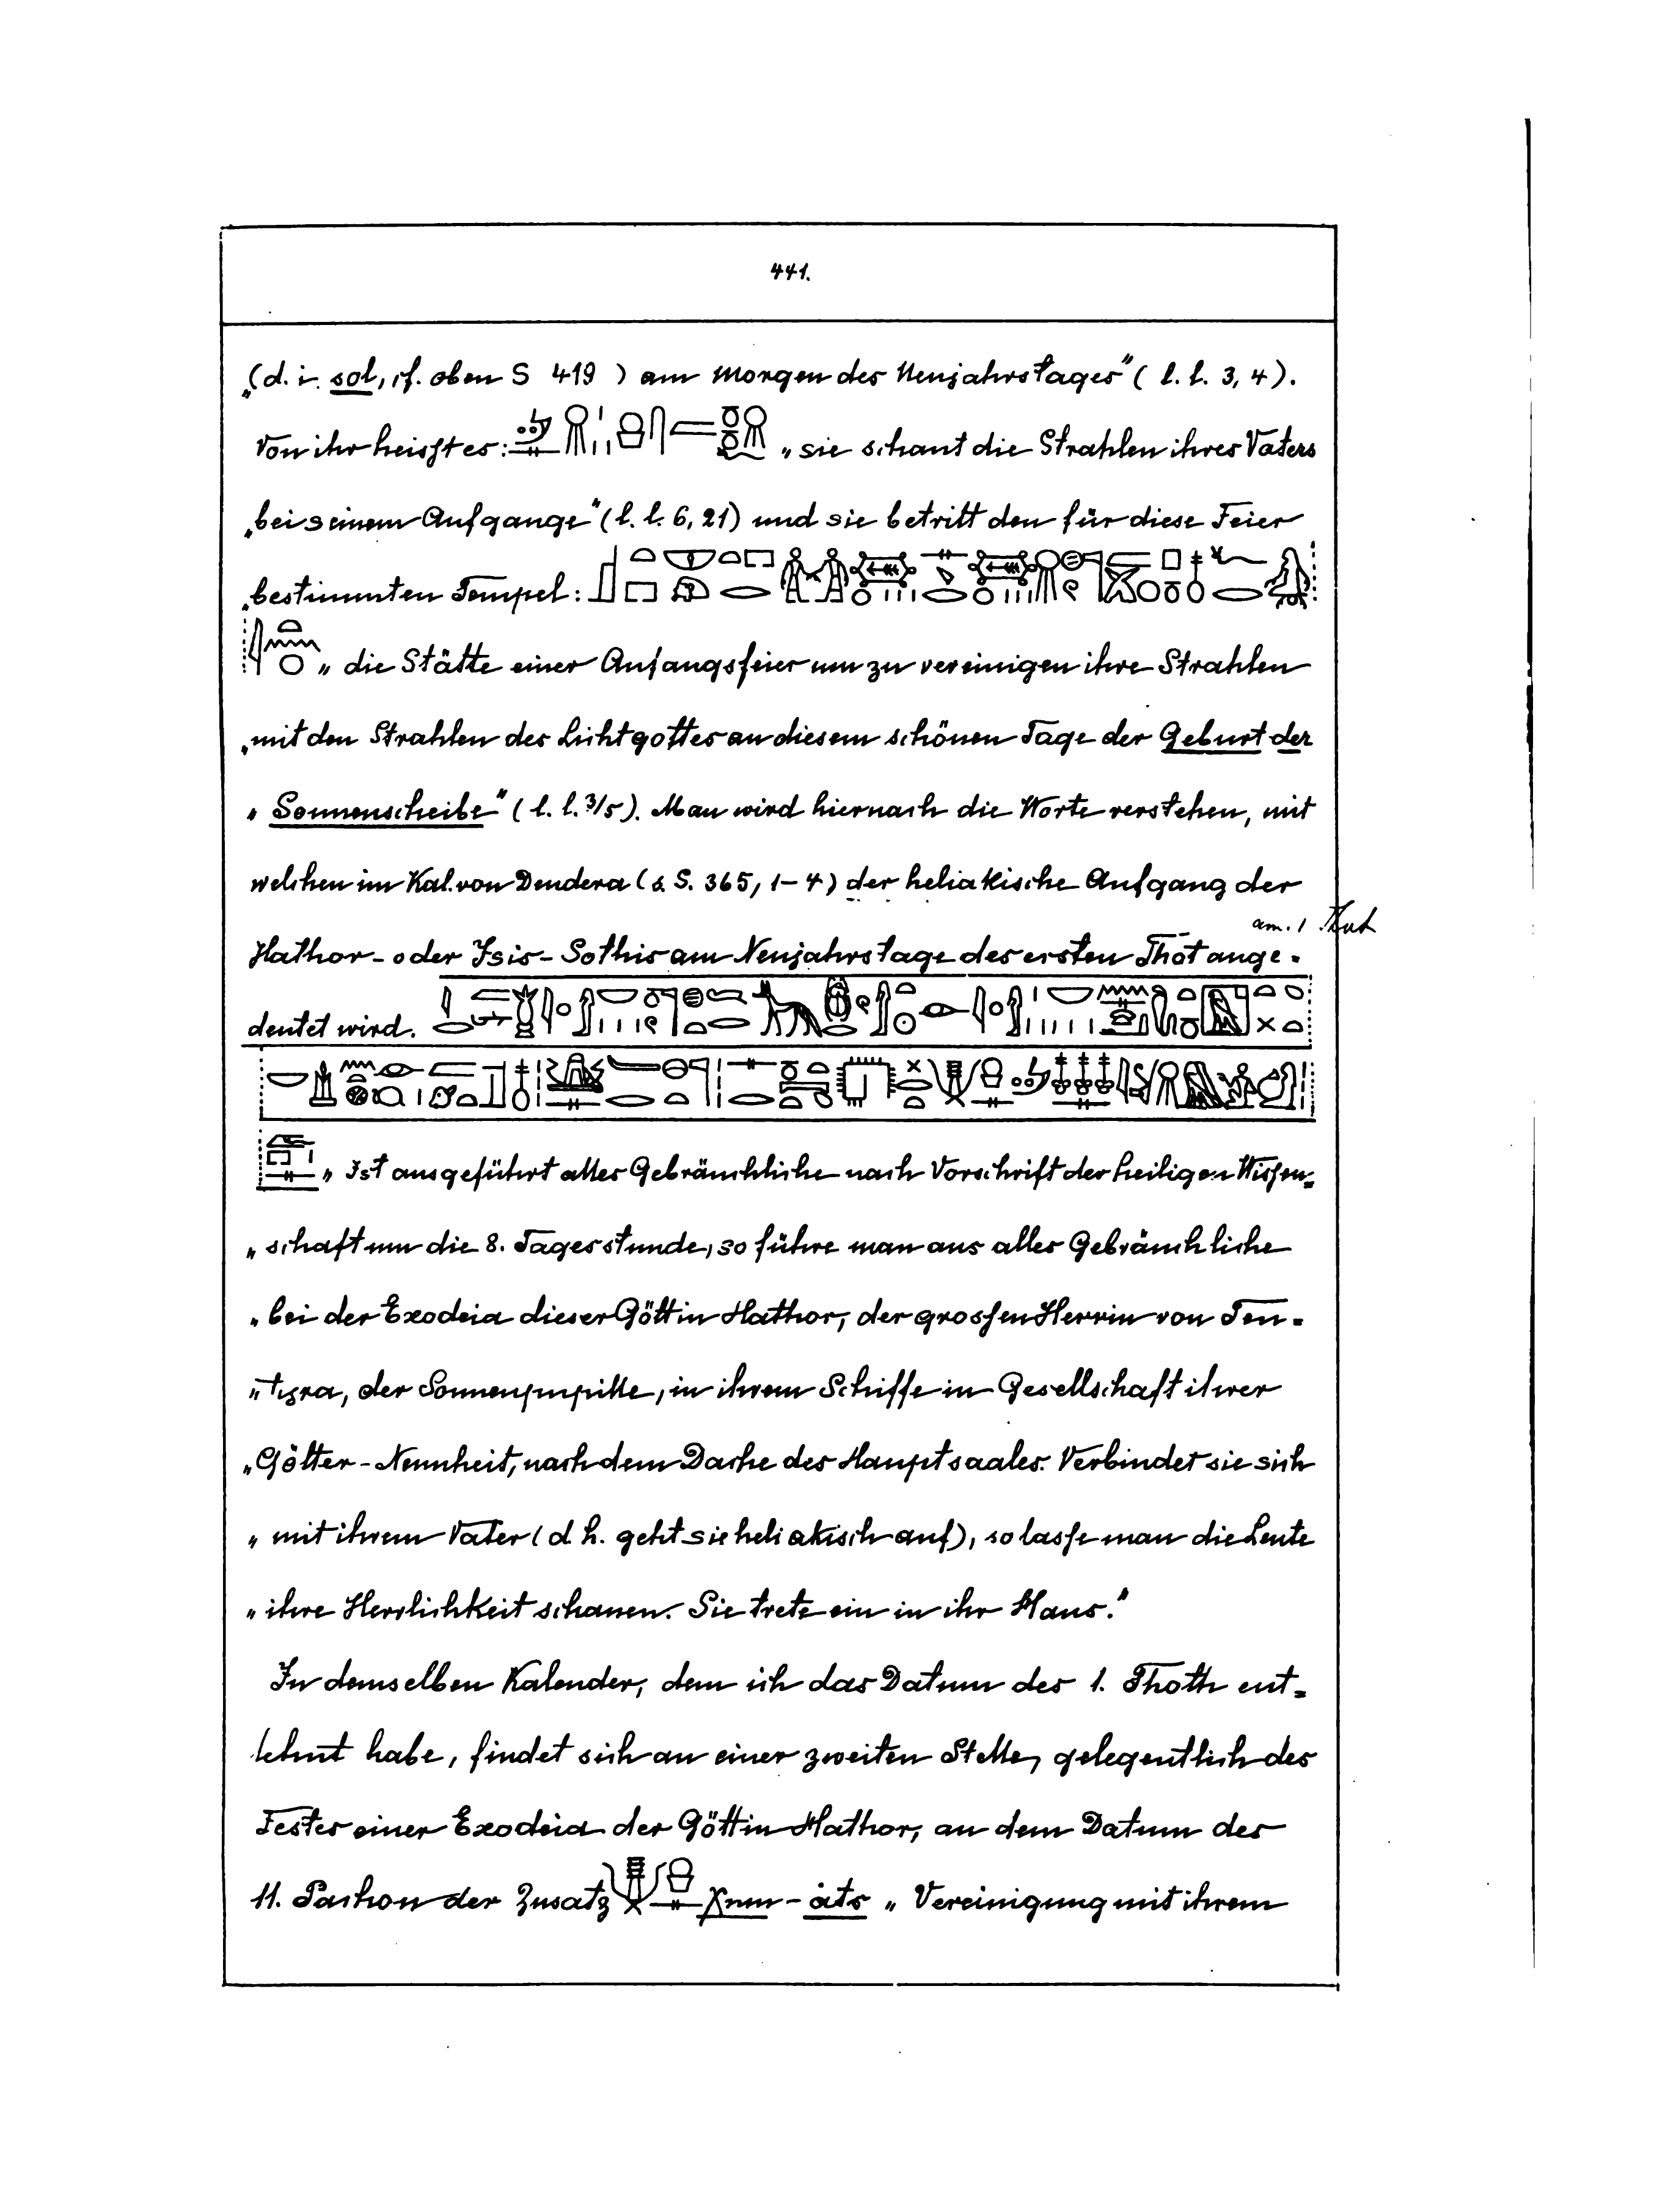 441.
„(d. i. sol, cf. oben S 419 ) am Morgen des Neujahrstages" ( l. l. 3, 4).
Von ihr heisst es: „sie schaut die Strahlen ihres Vaters
„bei seinem Aufgange" (l. l. 6, 21) und sie betritt den für diese Feier
„bestimmten Tempel:
„ die Stätte einer Anfangsfeier um zu vereinigen ihre Strahlen
„mit den Strahlen des Lichtgottes an diesem schönen Tage der Geburt der
„ Sonnenscheibe" ( l. l. 3/5). Man wird hiernach die Worte verstehen, mit
welchen im Kal. von Dendera (s. S. 365, 1-4) der heliakische Aufgang der
am. 1 Thot
Hathor- oder Isis-Sothis am Neujahrstage des ersten Thot ange-
deutet wird.
„ Ist ausgeführt alles Gebräuchliche nach Vorschrift der heiligen Wissen-
„ schaft um die 8. Tagesstunde, so führe man aus alles Gebräuchliche
„ bei der Exodeia dieser Göttin Hathor, der grossen Herrin von Ten-
„ tyra, der Sonnenpupille, in ihrem Schiffe in Gesellschaft ihrer
„Götter-Neunheit, nach dem Dache des Hauptsaales. Verbindet sie sich
„ mit ihrem Vater (d. h. geht sie heliakisch auf), so lasse man die Leute
„ ihre Herrlichkeit schauen. Sie trete ein in ihr Haus."
In demselben Kalender, dem ich das Datum des 1. Thoth ent-
lehnt habe, findet sich an einer zweiten Stelle, gelegentlich des
Festes einer Exodeia der Göttin Hathor, an dem Datum des
11. Pachon der Zusatz χnm - àts „ Vereinigung mit ihrem